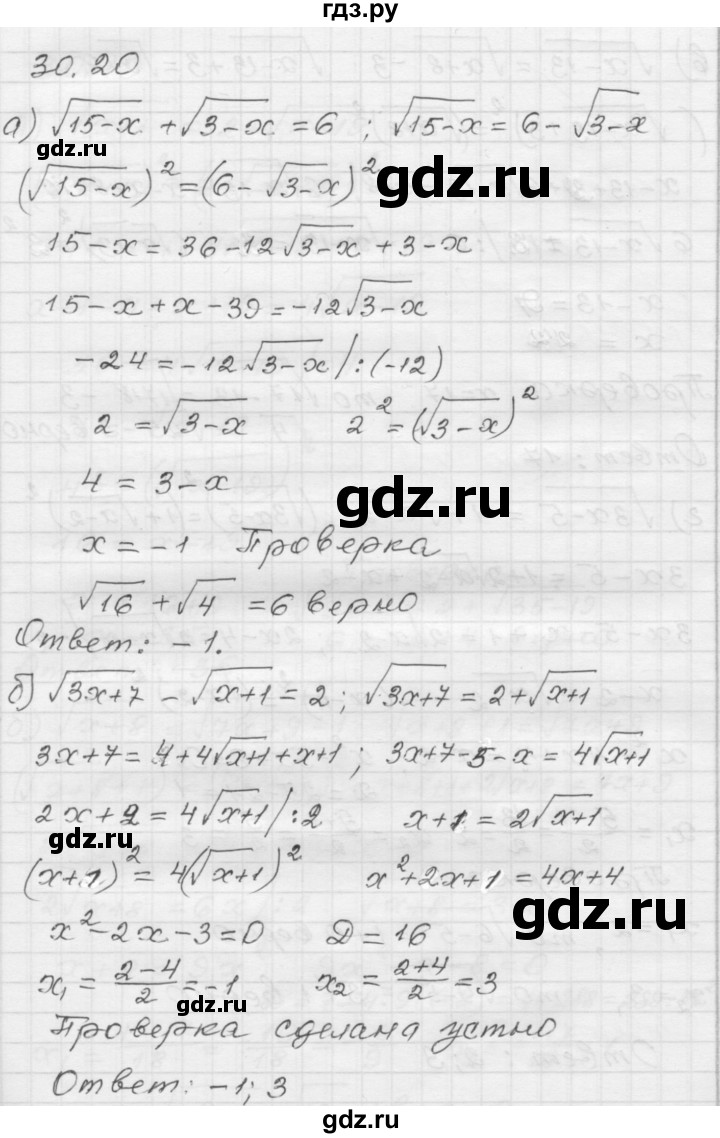 гдз.ру
30.20
а) √(15-x) + √(3-x) = 6 ; √(15-x) = 6 - √(3-x)
gdz.ru
(√(15-x))² = (6 - √(3-x))²
gdz.ru
15-x = 36-12√(3-x) + 3-x
15-x+x-39 = -12√(3-x)
-24 = -12√(3-x) /:(-12)
2 = √(3-x) 2² = (√(3-x))²
4 = 3-x
gdz.ru
x = -1 Проверка
√16 + √4 = 6 верно
Ответ: -1.
б) √(3x+7) - √(x+1) = 2 ; √(3x+7) = 2+√(x+1)
3x+7 = 4+4√(x+1)+x+1 ; 3x+7-5-x = 4√(x+1)
2x+2 = 4√(x+1) /:2 x+1 = 2√(x+1)
gdz.ru
(x+1)² = 4(√(x+1))² x²+2x+1 = 4x+4
gdz.ru
x²-2x-3=0 D=16
x₁ = (2-4)/2 = -1 x₂ = (2+4)/2 = 3
gdz.ru
Проверка сделана устно
Ответ: -1; 3
gdz.ru